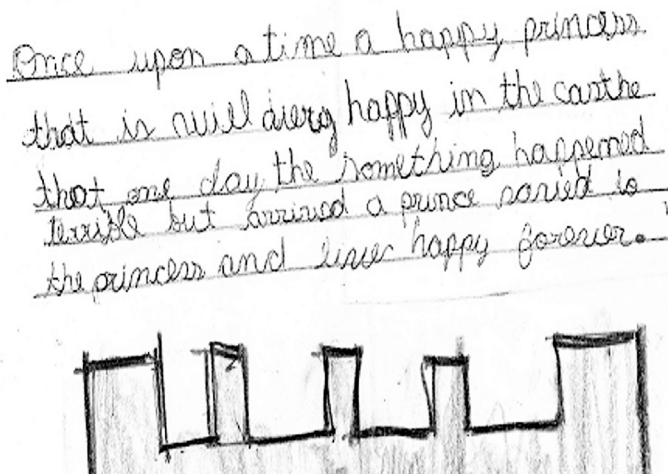 Once upon a time a happy princess
that is happy in the casthe
that one day the something happened
terrible but arrived a prince saried to
the princess and live happy forever.